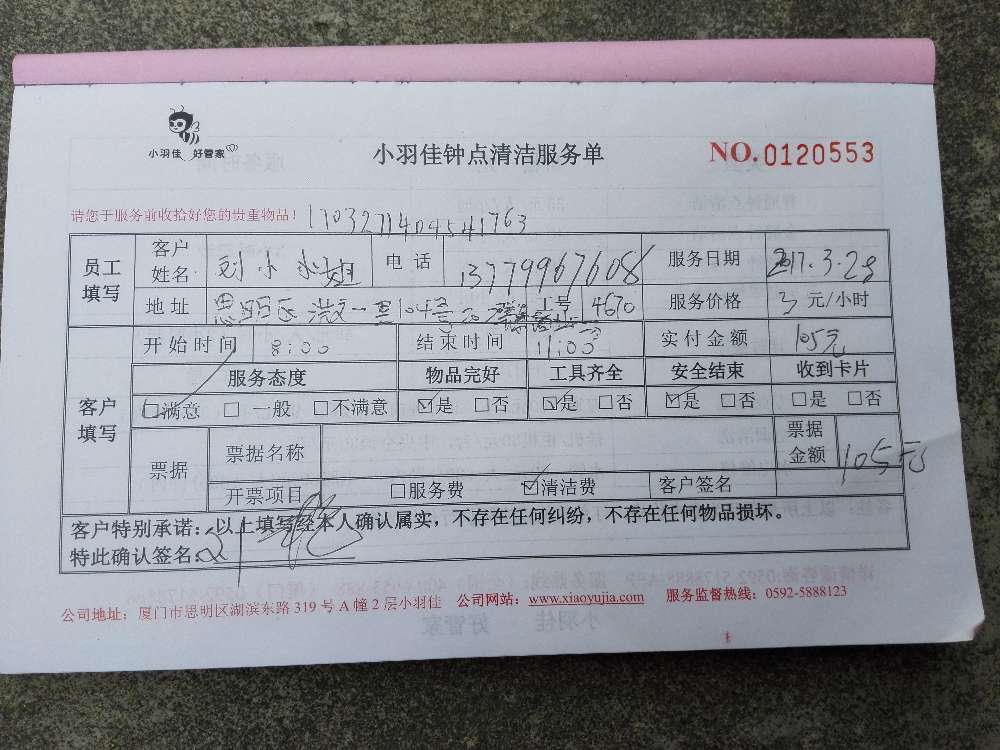 小羽佳 好管家
小羽佳钟点清洁服务单
NO.0120553
请您于服务前收拾好您的贵重物品！ 1703271404541763
员工填写 客户姓名 刘小姐 电话 13779967608 服务日期 2017.3.28
地址 思明区 工号 4670 服务价格 3 元/小时
客户填写 开始时间 8:00 结束时间 11:00 实付金额 105元
服务态度 物品完好 工具齐全 安全结束 收到卡片
☑满意 □一般 □不满意 ☑是 □否 ☑是 □否 ☑是 □否 □是 □否
票据 票据名称 票据金额 105元
开票项目 □服务费 ☑清洁费 客户签名
客户特别承诺：以上填写经本人确认属实，不存在任何纠纷，不存在任何物品损坏。
特此确认签名：
公司地址：厦门市思明区湖滨东路 319 号 A 幢 2 层小羽佳 公司网站：www.xiaoyujia.com 服务监督热线：0592-5888123